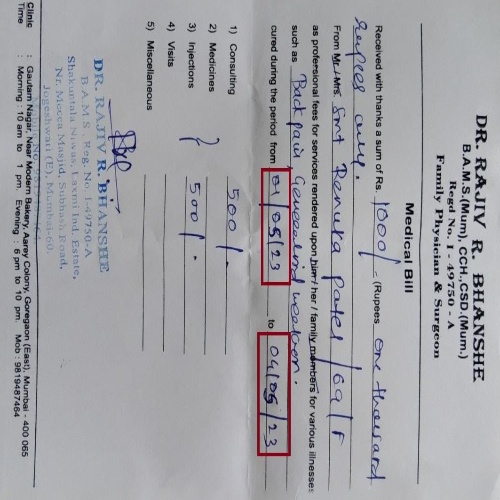 DR. RAJIV R. BHANSHE
B.A.M.S.(Mum) CCH.,CSD.(Mum.)
Regd No. I - 49750 - A
Family Physician & Surgeon
Medical Bill
Received with thanks a sum of Rs. 1000/- (Rupees one thousand
rupees only.
From Mr./Mrs. Smt Renuka Patel / 69 / F
as professional fees for services rendered upon him / her / family members for various illnesses
such as Back pain, Generalised weakness.
cured during the period from 01/05/23 to 04/05/23
1) Consulting 500/-
2) Medicines
3) Injections 500/-
4) Visits
5) Miscellaneous
DR. RAJIV R. BHANSHE
B.A.M.S. Reg. No. I-49750-A
Shakuntala Niwas, Laxmi Ind. Estate,
Nr. Mecca Masjid, Subhash Road,
Jogeshwari (E), Mumbai-60.
Clinic : Gautam Nagar, Near Modern Bakery, Aarey Colony, Goregaon (East), Mumbai - 400 065
Time : Morning : 10 am to 1 pm. Evening : 6 pm to 10 pm. Mob : 9819487464